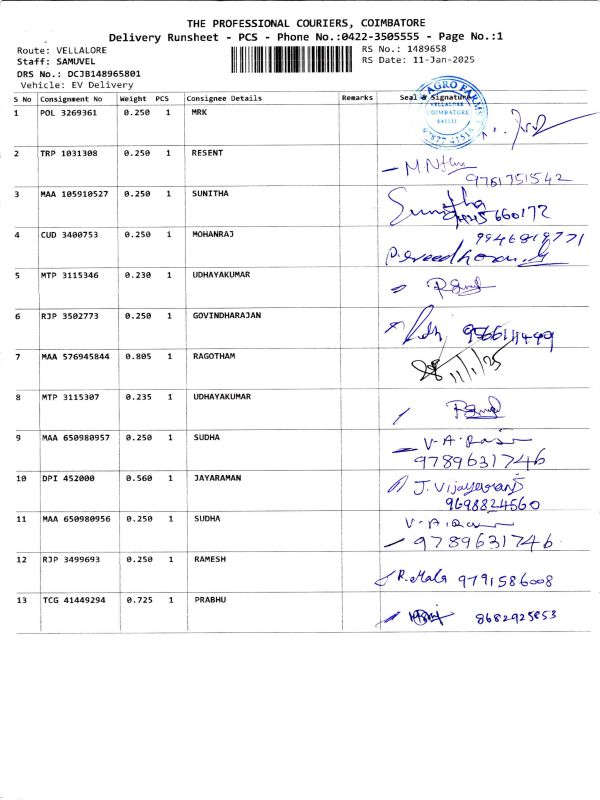 THE PROFESSIONAL COURIERS, COIMBATORE
Delivery Runsheet - PCS - Phone No.:0422-3505555 - Page No.:1
Route: VELLALORE
RS No.: 1489658
Staff: SAMUVEL
RS Date: 11-Jan-2025
DRS No.: DCJB148965801
Vehicle: EV Delivery
S No Consignment No Weight PCS Consignee Details Remarks Seal & Signature
AGRO FARMS
VELLALORE
COIMBATORE
641111
1 POL 3269361 0.250 1 MRK
2 TRP 1031308 0.250 1 RESENT
9761751542
3 MAA 105910527 0.250 1 SUNITHA Sunitha
660172
4 CUD 3400753 0.250 1 MOHANRAJ
5 MTP 3115346 0.230 1 UDHAYAKUMAR
6 RJP 3502773 0.250 1 GOVINDHARAJAN
7 MAA 576945844 0.805 1 RAGOTHAM 11/1/25
8 MTP 3115307 0.235 1 UDHAYAKUMAR
9 MAA 650980957 0.250 1 SUDHA
9789631746
10 DPI 452000 0.560 1 JAYARAMAN J. Vijayarani
9698824560
11 MAA 650980956 0.250 1 SUDHA
9789631746
12 RJP 3499693 0.250 1 RAMESH R. Mala 9791586008
13 TCG 41449294 0.725 1 PRABHU 8682925853